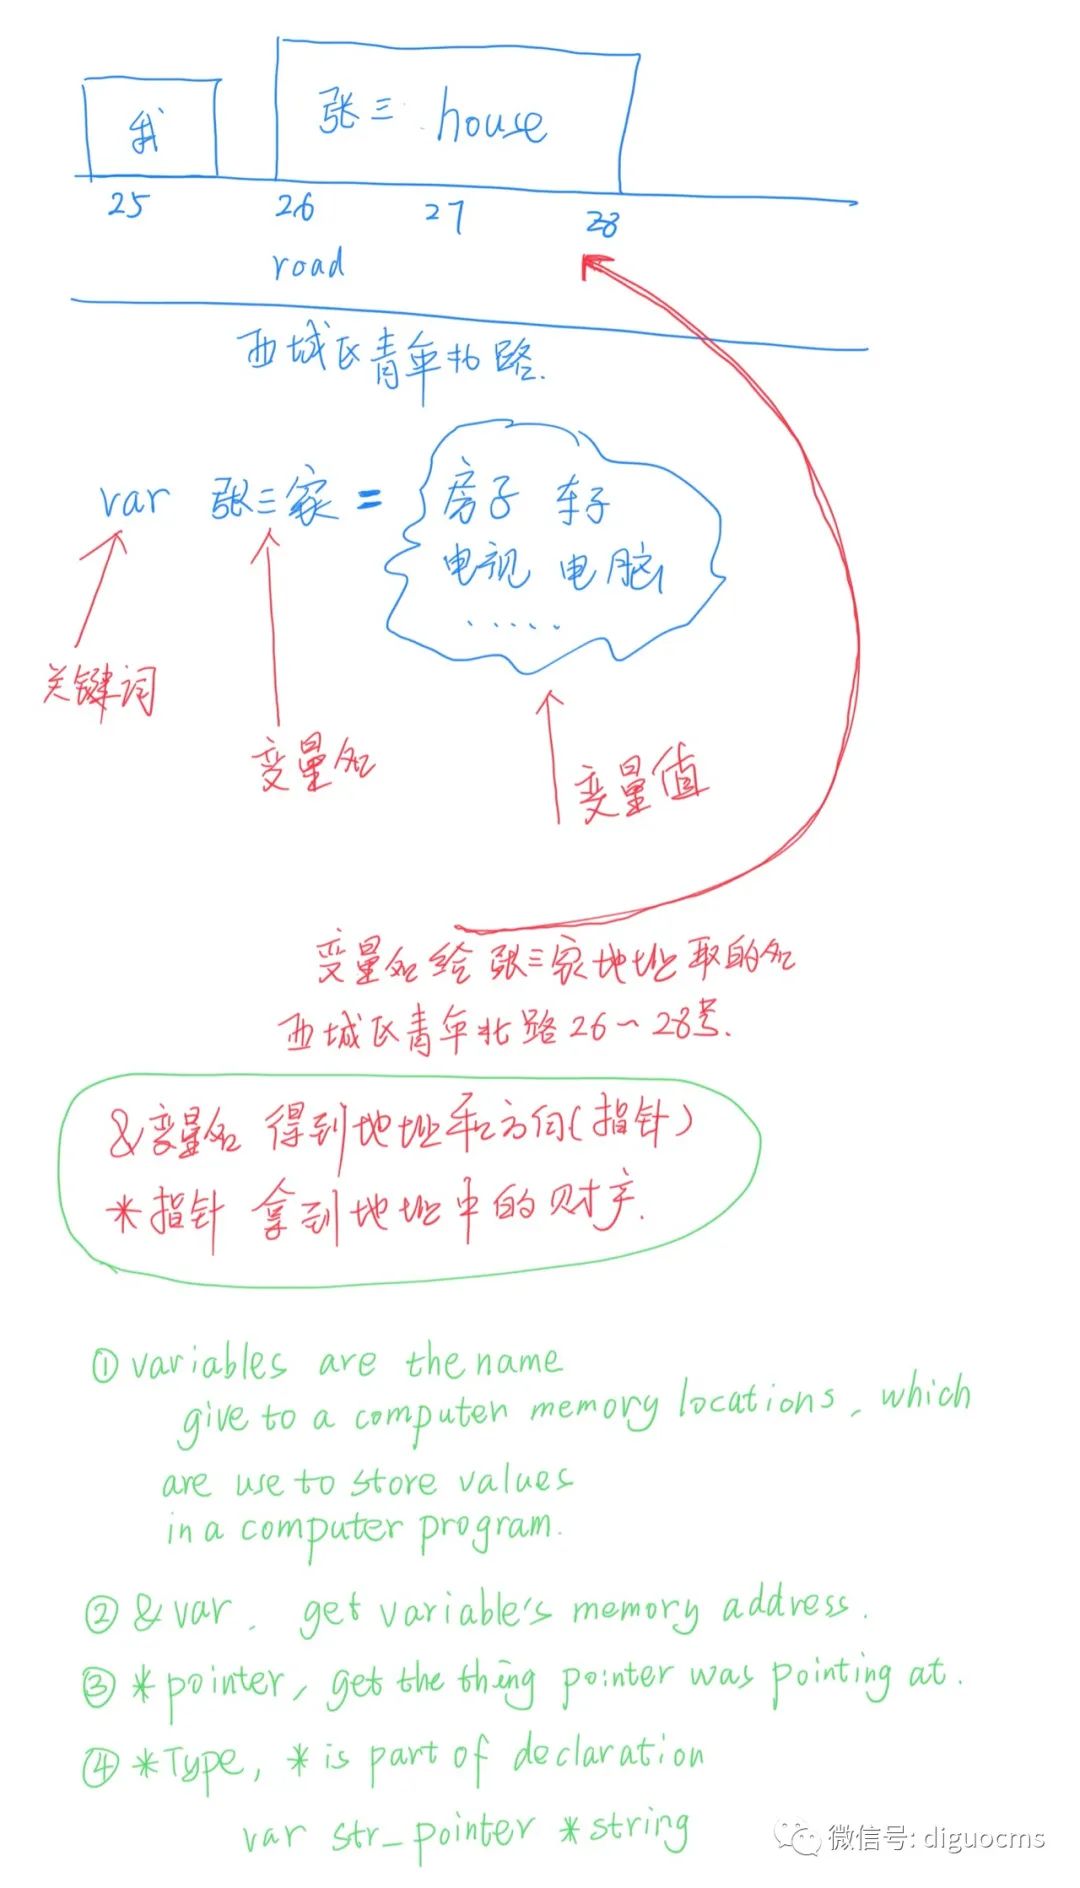 我
张三 house
25 26 27 28
road
西城区青年北路.
var 张三家 =
房子 车子
电视 电脑
......
关键词
变量名
变量值
变量名给张三家地址取的名
西城区青年北路26~28号.
&变量名 得到地址和方向(指针)
*指针 拿到地址中的财产.
① variables are the name
give to a computer memory locations, which
are use to store values
in a computer program.
② & var. get variable's memory address.
③ *pointer, get the thing pointer was pointing at.
④ *Type, * is part of declaration
var str_pointer *string
微信号: diguocms